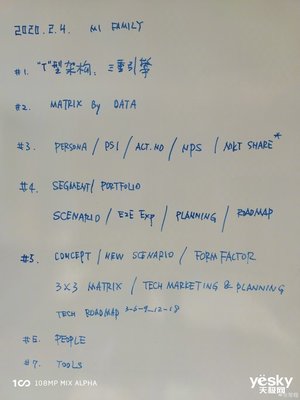 2020.2.4. MI FAMILY
#1. "T"型架构：三重引擎
#2. MATRIX By DATA
#3. PERSONA / PSI / ACT.NO / NPS / MKT SHARE*
#4. SEGMENT/ PORTFOLIO
SCENARIO / E2E EXP / PLANNING / ROADMAP
#5. CONCEPT / NEW SCENARIO / FORM FACTOR
3x3 MATRIX / TECH MARKETING & PLANNING
TECH ROADMAP 3-6-9-12-18
#6. PEOPLE
#7. TOOLS
108MP MIX ALPHA
yesky
天极网